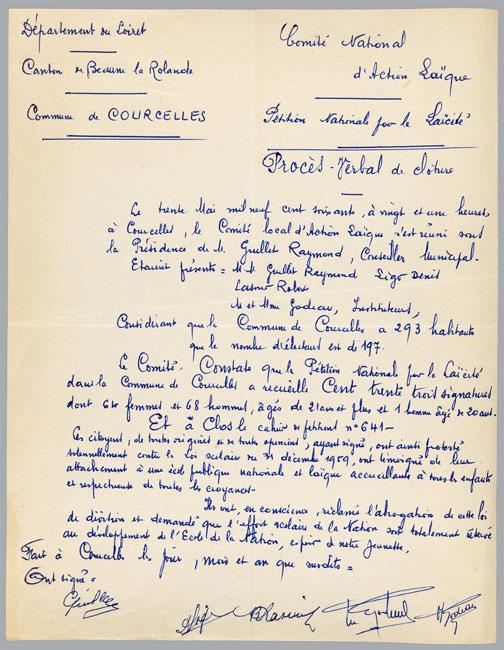 Département du Loiret
Canton de Beaune la Rolande
Commune de COURCELLES
Comité National
d'Action Laïque
Pétition Nationale pour la Laïcité
Procès-Verbal de clôture
Le trente Mai mil neuf cent soixante, à vingt et une heures
à Courcelles, le Comité local d'Action Laïque s'est réuni sous
la Présidence de M. Guillet Raymond, Conseiller Municipal.
Etaient présents = M.M. Guillet Raymond Ligo Denis
Robert
M et Mme Godeau, Instituteurs,
Considérant que la Commune de Courcelles a 293 habitants
que le nombre d'électeurs est de 197.
Le Comité. Constate que la Pétition Nationale pour la Laïcité
dans la Commune de Courcelles a recueilli Cent trente trois signatures
dont 64 femmes et 68 hommes, âgés de 21 ans et plus et 1 homme âgé de 20 ans.
Et à Clos le cahier de pétitions n° 641 -
Ces citoyens, de toutes origines et de toutes opinions, ayant signé, ont ainsi protesté
solennellement contre la Loi scolaire du 31 décembre 1959, ont témoigné de leur
attachement à une école publique nationale et laïque accueillante à tous les enfants
et respectueuse de toutes les croyances.
Ils ont, en conscience, réclamé l'abrogation de cette loi
de division et demandé que l'effort scolaire de la Nation soit totalement réservé
au développement de l'Ecole de la Nation, espoir de notre Jeunesse.
Fait à Courcelles les jour, mois et an que susdits =
Ont signé =